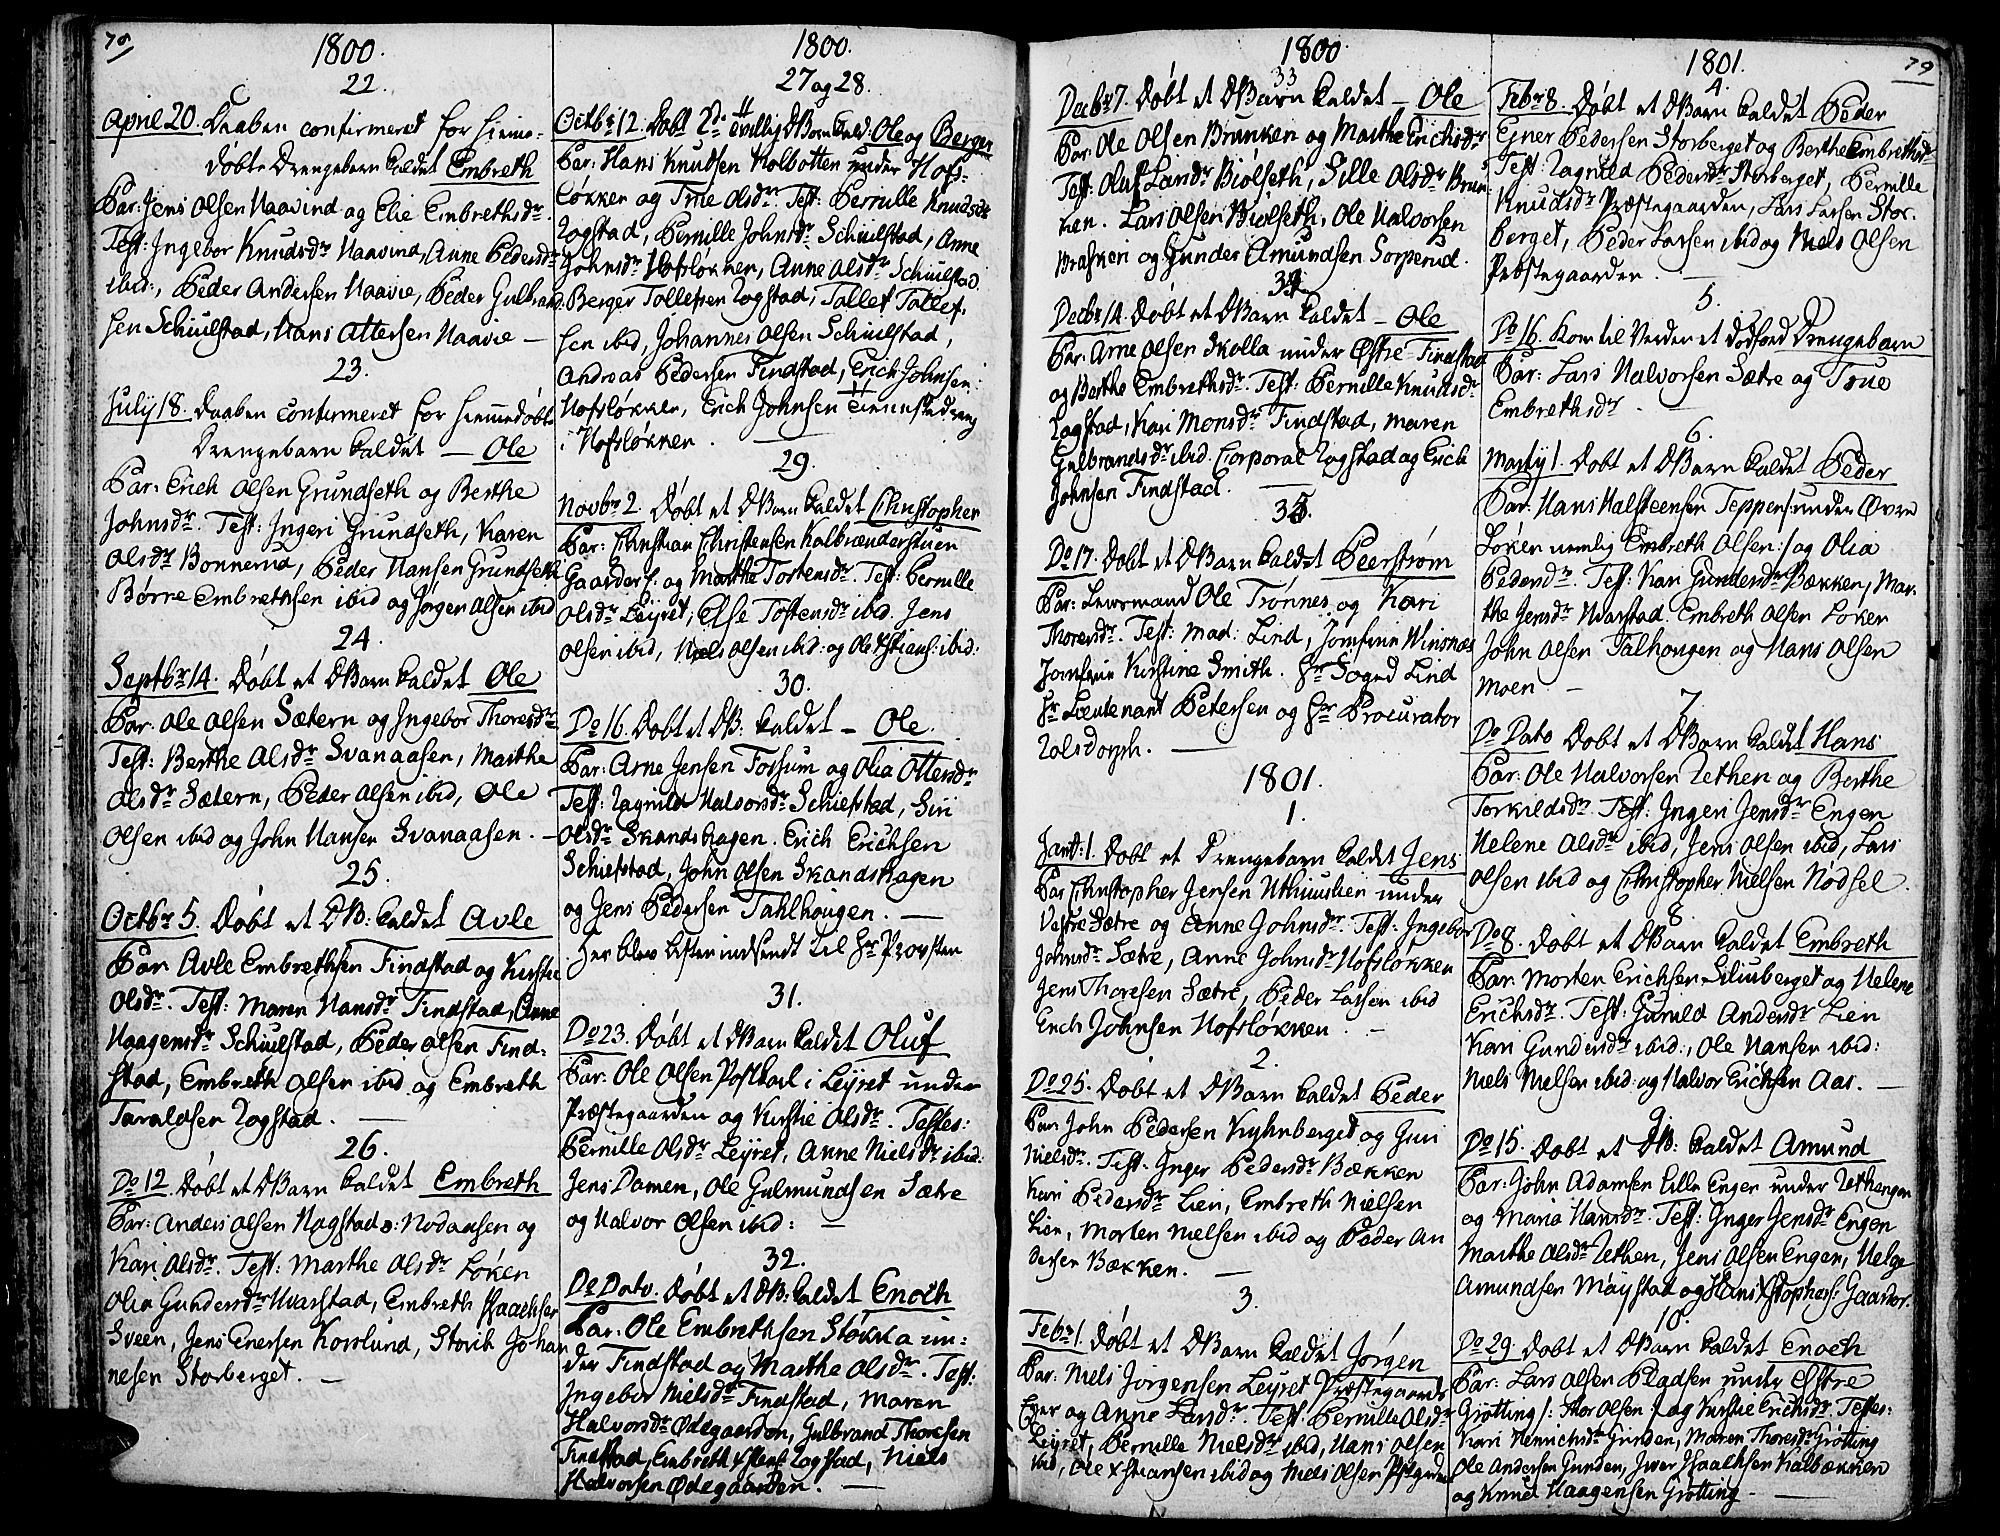 78
1800.
22.
April 20. Daaben confirmeret for hieme-
døbte Drengebarn kaldet Embreth
Par: Jens Olsen Haavind og Elie Embrethsdr.
Test: Ingebor Knudsdr Haavind, Anne Pedersdr
ibid:, Peder Andersen Haavie, Peder Gulbrand-
sen Schiulstad, Hans Attersen Haavie —
23.
July 18. Daaben confirmeret for hiemedøbt
Drengebarn kaldet — Ole
Par: Erich Olsen Grundseth og Berthe
Johnsdr. Test: Ingeri Grundseth, Karen
Olsdr Bonnerud, Peder Hansen Grundseth
Børre Embrethsen ibid og Jørgen Olsen ibid
24.
Septbr 14. Døbt et DBarn kaldet Ole
Par: Ole Olsen Sætern og Ingebor Thoresdr
Test: Berthe Alsdr Svanaasen, Marthe
Olsdr Sætern, Peder Olsen ibid, Ole
Olsen ibid og John Hansen Svanaasen. —
25.
Octbr 5. Døbt et DB: kaldet Avle
Par: Avle Embrethsen Findstad og Kirstie
Olsdr. Test: Maren Hansdr Findstad, Anne
Haagensdr Schiulstad, Peder Olsen Find-
stad, Embreth Olsen ibid og Embreth
Taraldsen Rogstad. —
26.
Do 12. Døbt et DBarn kaldet Embreth
Par: Anders Olsen Hagstad o: Nodaasen og
Kari Alsdr. Test: Marthe Alsdr Løken
Olia Gundersdr Hvarstad, Embreth Haachsen
Sveen, Jens Enersen Korslund, Storik Johan
nesen Storberget. —
1800.
27 og 28.
Octbr 12. Døbt 2de tvillig DBørn kald. Ole og Berger
Par: Hans Knudsen Holbotten under Hofs-
løkken og True Olsdr. Test: Pernille Knudsdr
Rogstad, Pernille Johnsdr Schiulstad, Anne
Johnsdr Hofsløkken, Anne Alsdr Schiulstad
Berger Tollefsen Rogstad, Tollef Tollef-
sen ibid, Johannes Olsen Schiulstad,
Andreas Pedersen Findstad, Erich Johnsen
Hofsløkken, Erich Johnsen Tienistedreng
i Hofsløkken. —
29.
Novbr 2. Døbt et DBarn kaldet Christopher
Par: Christian Christensen Kalbrænderstuen
Gaarder f. og Marthe Tostensdr. Test: Pernille
Olsdr Leyret, Else Tostensdr ibid. Jens
Olsen ibid, Niels Olsen ibid: og Ole Xstians: ibid:
30.
Do 16. Døbt et DB: kaldet — Ole
Par: Arne Jensen Fossum og Olia Ottersdr
Test: Ragnild Halvorsdr Schiefstad, Siri
Olsdr Skandshagen. Erich Erichsen
Schiefstad, John Olsen Skandshagen
og Jens Pedersen Tahlhougen. —
Her blev Listen indsendt til Hr Provsten
31.
Do 23. Døbt et DBarn kaldet Oluf
Par: Ole Olsen Postkarl i Leyret under
Præstegaarden og Kirstie Alsdr. Testes:
Pernille Olsdr Leyret, Anne Nielsdr ibid:
Jens Damen, Ole Gulmundsen Sætre
og Halvor Olsen ibid: —
32.
Do Dato. Døbt et DB: kaldet Enoch
Par: Ole Embrethsen Støkka un-
der Findstad og Marthe Alsdr. Test:
Ingebor Nielsdr Findstad, Maren
Halvorsdr Ødegaarden, Gulbrand Thoresen
Findstad, Embreth Rogstad, Niels
Halvorsen Ødegaarden. —
1800
33
Decbr 7. Døbt et DBarn kaldet — Ole
Par: Ole Olsen Brunken og Marthe Erichsdr
Test: Oluf Landr Biølseth, Sille Olsdr Brun-
ken. Lars Olsen Biølseth, Ole Halvorsen
Brasken og Gunder Amundsen Sorperud.
34.
Decbr 14. Døbt et DBarn kaldet — Ole
Par: Arne Olsen Skolla under Østre Findstad
og Berthe Embrethsdr. Test: Pernille Knudsdr
Rogstad, Kari Monsdr Findstad, Maren
Gulbrandsdr ibid. Corporal Rogstad og Erich
Johnsen Findstad. —
35.
Do 17. Døbt et DBarn kaldet Peerstrøm
Par: Lensmand Ole Trønnes og Kari
Thoresdr. Test: Mad: Lind, Jomfrue Winsnæs
Jomfrue Kirstine Smith. Hr Soged Lind
Hr Lieutenant Petersen og Hr Procurator
Rolsdorph. —
1801.
1.
Janr: 1. Døbt et Drengebarn kaldet Jens
Par: Christopher Jensen Uthuuslien under
Vestre Sætre og Anne Johnsdr. Test: Ingebor
Johnsdr Sætre, Anne Johnsdr Hofsløkken
Jens Thoresen Sætre, Peder Larsen ibid
Erich Johnsen Hofsløkken. —
2.
Do 25. Døbt et DBarn kaldet Peder
Par: John Pedersen Kyhnberget og Guri
Nielsdr. Test: Inger Pedersdr Bækken
Kari Pedersdr Lien, Embreth Nielsen
Lien, Morten Nielsen ibid og Peder An
dersen Bækken. —
3.
Febr 1. Døbt et DBarn kaldet Jørgen
Par: Niels Jørgensen Leyret Præstegaards
Eyer og Anne Larsdr. Test: Pernille Alsdr
Leyret, Pernille Nielsdr ibid, Hans Olsen
ibid, Ole Xstiansen ibid og Niels Olsen Pstgrd
1801.
79
4.
Febr 8. Døbt et DBarn kaldet Peder
Egner Pedersen Storberget og Berthe Embrethsdr
Test: Ragnild Pedersdr Storberget, Pernille
Knudsdr Præstegaarden, Lars Larsen Stor-
berget, Peder Larsen ibid og Niels Olsen
Præstegaarden. —
5.
Do 16. Kom til Verden et dødfød Drengebarn
Par: Lars Halvorsen Sætre og True
Embrethsdr. —
6.
Marty 1. Døbt et DBarn kaldet Peder
Par: Hans Halsteensen Teppen /: under Øvre
Løken nemlig Embreth Olsen :/ og Olia
Pedersdr. Test: Kari Gundersdr Bækken, Mar-
the Jensdr Hvarstad. Embreth Olsen Løken
John Olsen Talhougen og Hans Olsen
Moen. —
7.
Do Dato Døbt et DBarn kaldet Hans
Par: Ole Halvorsen Rethen og Berthe
Torkildsdr. Test: Ingeri Jensdr Engen
Helene Alsdr ibid, Jens Olsen ibid, Lars
Olsen ibid og Christopher Nielsen Nødsel.
8.
Do 8. Døbt et DBarn kaldet Embreth
Par: Morten Erichsen Liliuberget og Helene
Erichsdr. Test: Gunild Andersdr Lien
Kari Gundersdr ibid:, Ole Hansen ibid:
Niels Nielsen ibid: og Halvor Erichsen Aas. —
9.
Do 15. Døbt et DB: kaldet Amund
Par: John Adamsen Lille Engen under Rethengen
og Maria Hansdr. Test: Inger Jensdr Engen
Marthe Alsdr Rethen, Jens Olsen Engen, Helge
Amundsen Møystad og Hans Xstophers: Gaarder.
10.
Do 29. Døbt et DBarn kaldet Enoch
Par: Lars Olsen Pladsen under Østre
Grøtting /: Thor Olsen :/ og Kirstie Erichsdr. Testes:
Kari Henrichsdr Gunden, Maren Thoresdr Grøtting
Ole Andersen Gunden, Iver Haachsen Kalbækken
og Knud Haagensen Grøtting. —